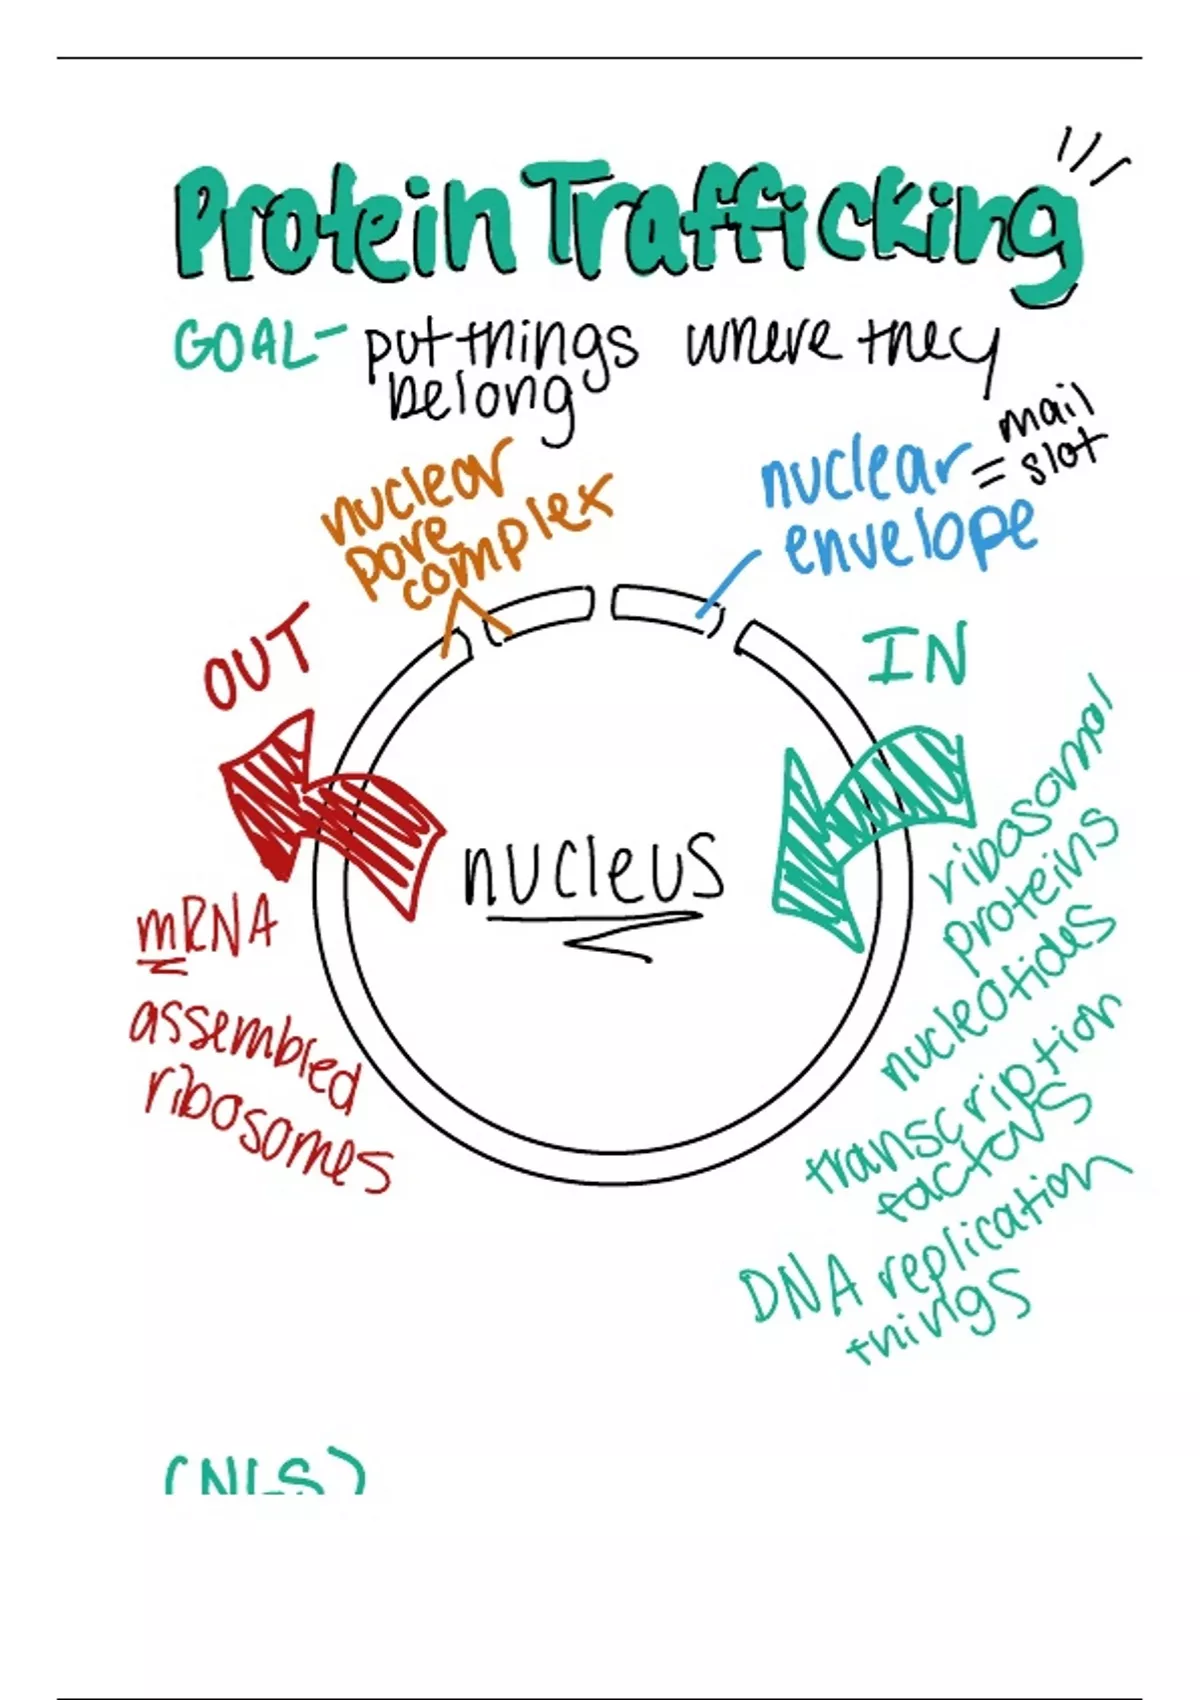 Protein Trafficking
GOAL- put things where they
belong
nuclear
pore
complex
nuclear = mail
slot
envelope
OUT
IN
nucleus
mRNA
assembled
ribosomes
ribosomal
proteins
nucleotides
transcription
factors
DNA replication
things
(NLS)